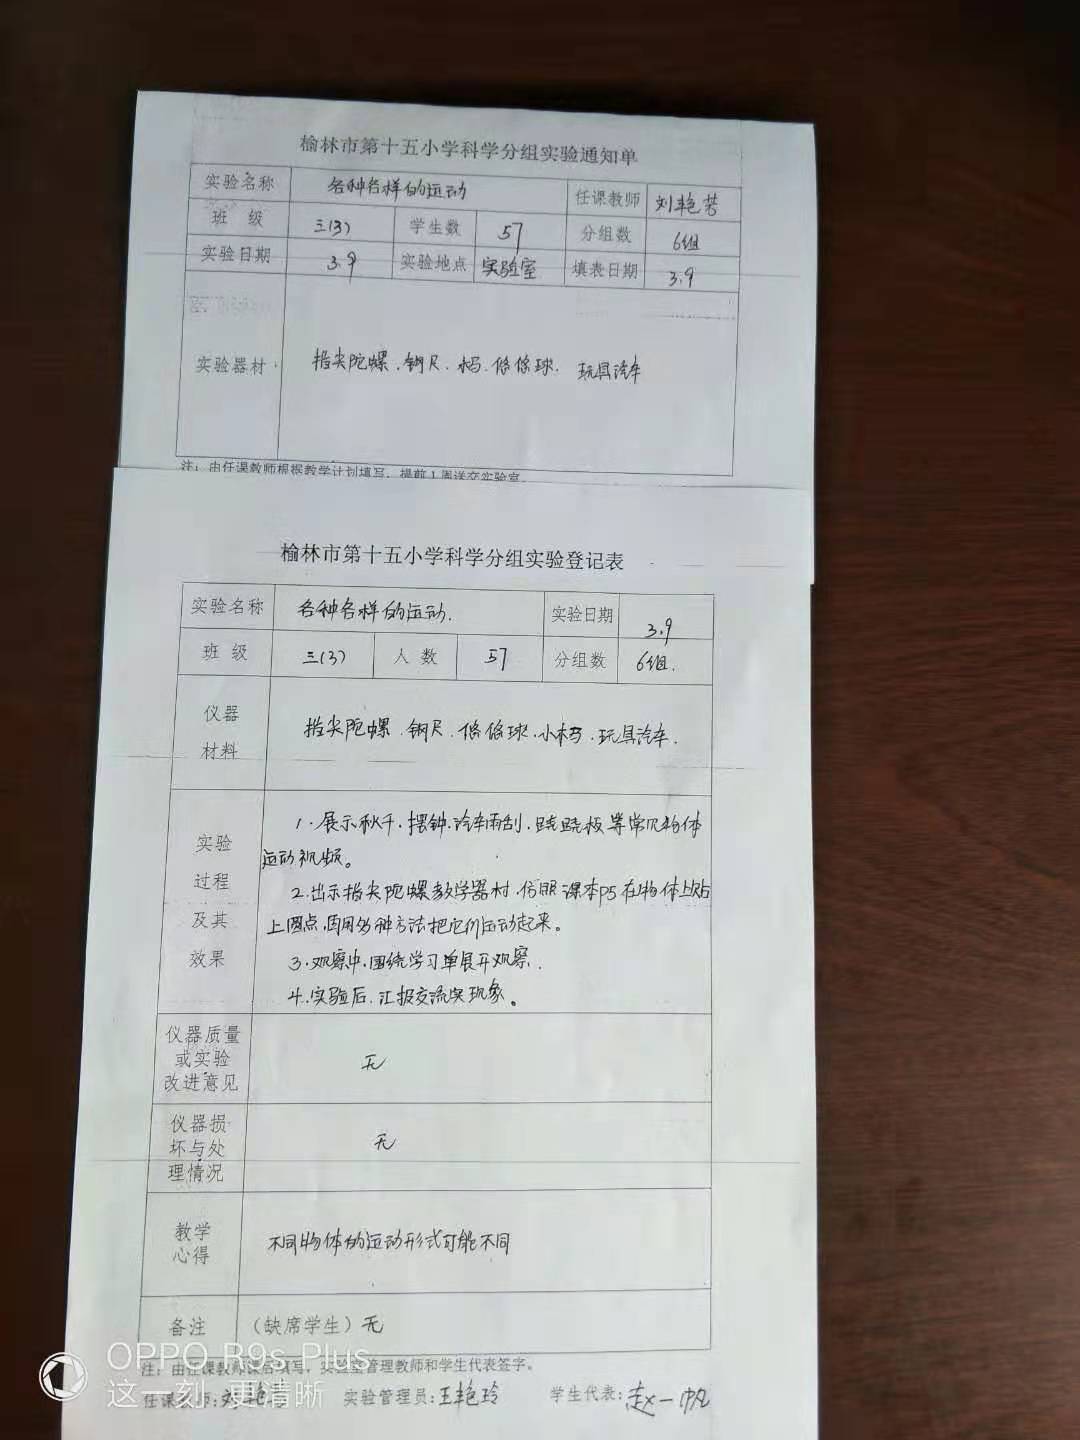 榆林市第十五小学科学分组实验通知单
实验名称 各种各样的运动 任课教师 刘艳芳
班 级 三(3) 学生数 57 分组数 6组
实验日期 3.9 实验地点 实验室 填表日期 3.9
实验器材 指尖陀螺.钢尺.木马.悠悠球. 玩具汽车
注：由任课教师根据教学计划填写，提前1周送交实验室。
榆林市第十五小学科学分组实验登记表
实验名称 各种各样的运动. 实验日期 3.9
班 级 三(3) 人 数 57 分组数 6组.
仪器
材料
指尖陀螺.钢尺.悠悠球.小木马.玩具汽车.
实验
过程
及其
效果
1.展示秋千.摆钟.汽车雨刮.跷跷板等常见物体
运动视频。
2.出示指尖陀螺教学器材.仿照课本P5在物体上贴
上圆点,再用多种方法把它们运动起来。
3.观察中,围绕学习单展开观察.
4.实验后.汇报交流实现象。
仪器质量
或实验
改进意见
无
仪器损
坏与处
理情况
无
教学
心得
不同物体的运动形式可能不同
备注 （缺席学生）无
注：由任课教师课后填写，实验室管理教师和学生代表签字。
任课教师：刘艳芳 实验管理员：王艳玲 学生代表：赵一帆
OPPO R9s Plus
这一刻 更清晰